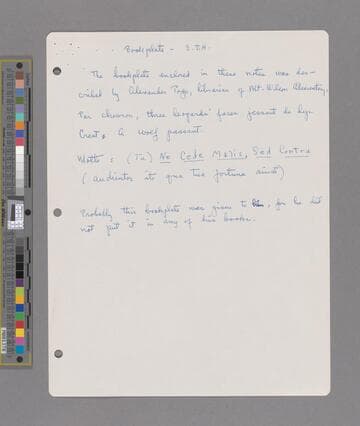 Bookplate - S.T.H.
The bookplate enclosed in these notes was des-
cribed by Alexander Pogo, librarian of Mt. Wilson Observatory.
Per chevron, three leopards' faces jessant de lys
Crest, A wolf passant.
Motto : (Tu) Ne Cede Malis, Sed Contra
(audentior ito qua tua fortuna sinet)
Probably this bookplate was given to him, for he did
not put it in any of his books.